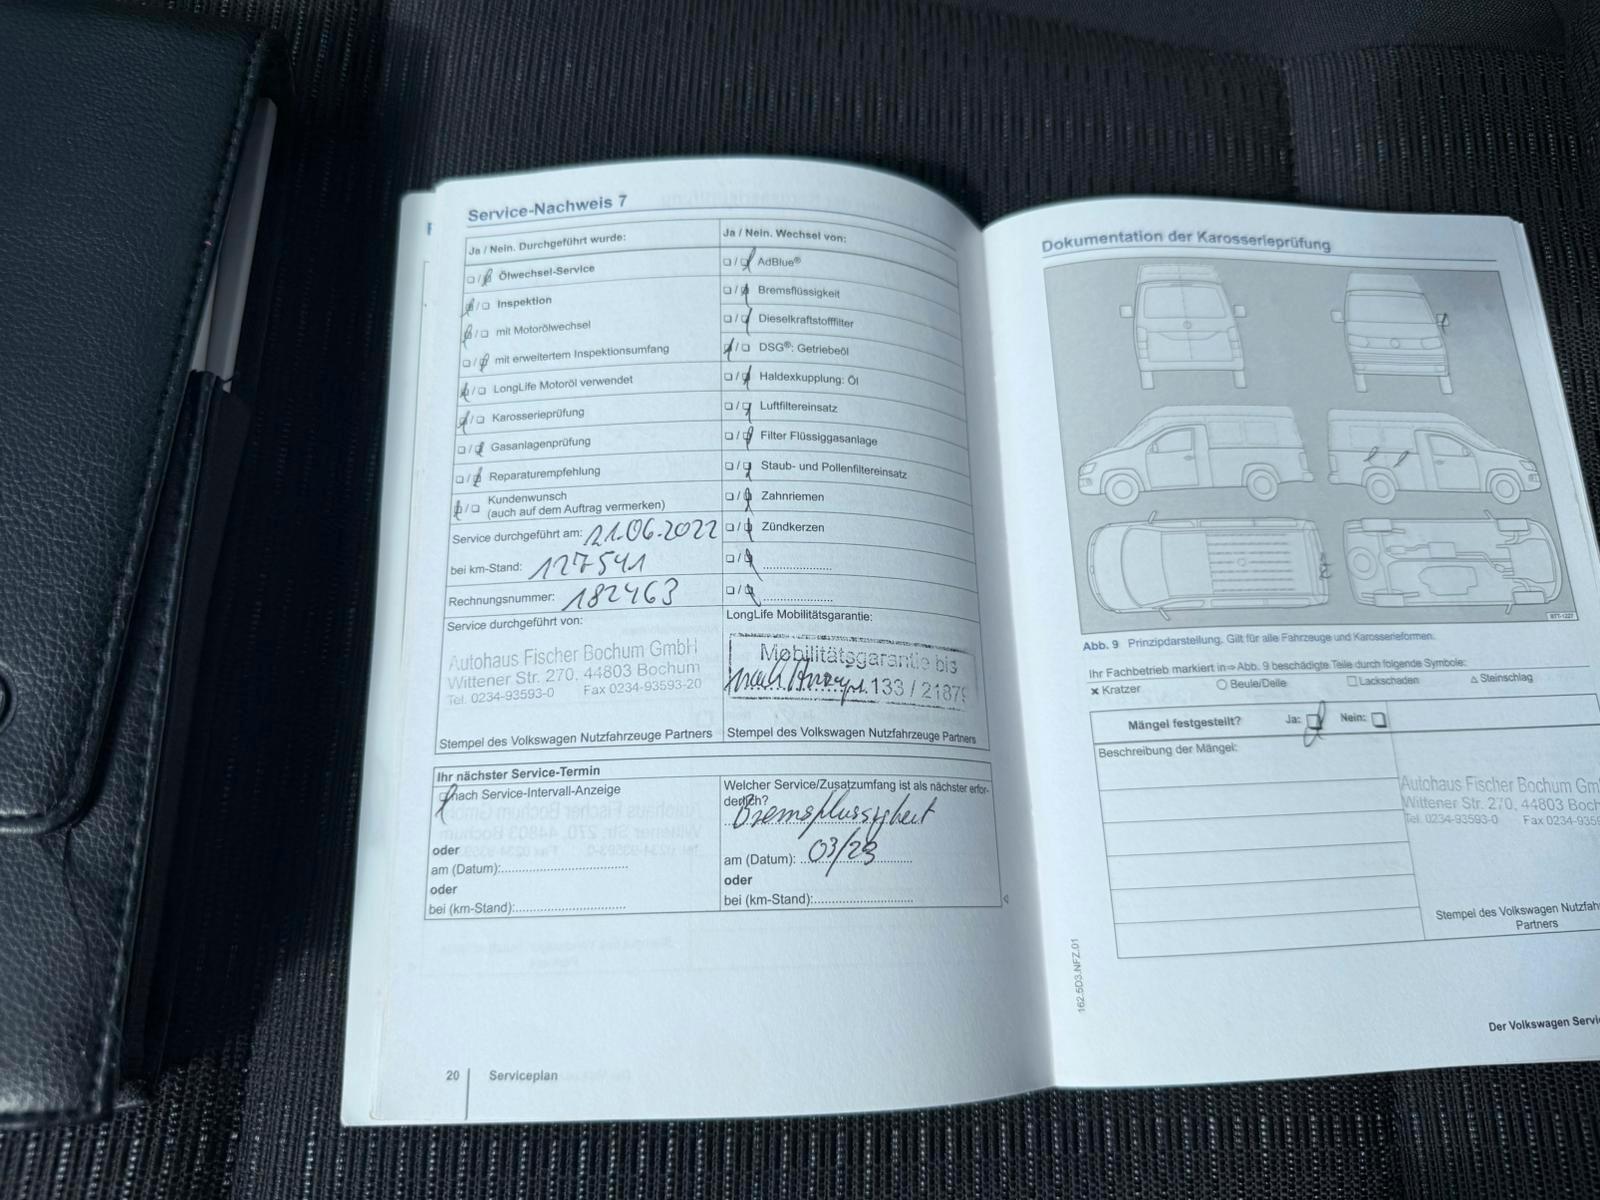 Service-Nachweis 7
Ja / Nein. Durchgeführt wurde:
Ölwechsel-Service
Inspektion
mit Motorölwechsel
mit erweitertem Inspektionsumfang
LongLife Motoröl verwendet
Karosserieprüfung
Gasanlagenprüfung
Reparaturempfehlung
Kundenwunsch
(auch auf dem Auftrag vermerken)
Service durchgeführt am: 21.06.2022
bei km-Stand: 127541
Rechnungsnummer: 182463
Service durchgeführt von:
Autohaus Fischer Bochum GmbH
Wittener Str. 270, 44803 Bochum
Tel. 0234-93593-0 Fax 0234-93593-20
Stempel des Volkswagen Nutzfahrzeuge Partners
Ja / Nein. Wechsel von:
AdBlue®
Bremsflüssigkeit
Dieselkraftstofffilter
DSG®: Getriebeöl
Haldexkupplung: Öl
Luftfiltereinsatz
Filter Flüssiggasanlage
Staub- und Pollenfiltereinsatz
Zahnriemen
Zündkerzen
LongLife Mobilitätsgarantie:
Mobilitätsgarantie bis
nach 133 / 21879
Stempel des Volkswagen Nutzfahrzeuge Partners
Ihr nächster Service-Termin
nach Service-Intervall-Anzeige
oder
am (Datum):
oder
bei (km-Stand):
Welcher Service/Zusatzumfang ist als nächster erfor-
derlich?
Bremsflüssigkeit
am (Datum): 03/23
oder
bei (km-Stand):
20 Serviceplan
Dokumentation der Karosserieprüfung
BTT-1227
Abb. 9 Prinzipdarstellung. Gilt für alle Fahrzeuge und Karosserieformen.
Ihr Fachbetrieb markiert in ⇒ Abb. 9 beschädigte Teile durch folgende Symbole:
× Kratzer ○ Beule/Delle □ Lackschaden △ Steinschlag
Mängel festgestellt? Ja: Nein:
Beschreibung der Mängel:
Autohaus Fischer Bochum Gm
Wittener Str. 270, 44803 Boch
Tel. 0234-93593-0 Fax 0234-935
Stempel des Volkswagen Nutzfah
Partners
162.5D3.NFZ.01
Der Volkswagen Servi